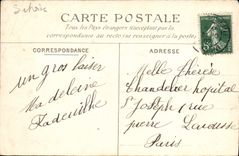 CARTE POSTALE
Tous les Pays étrangers n'acceptent pas la
correspondance au recto (se renseigner à la poste)
CORRESPONDANCE
ADRESSE
un gros baiser
Madeleine
Melle Thérèse
hopital
St Joseph rue
pierre Larousse
Paris